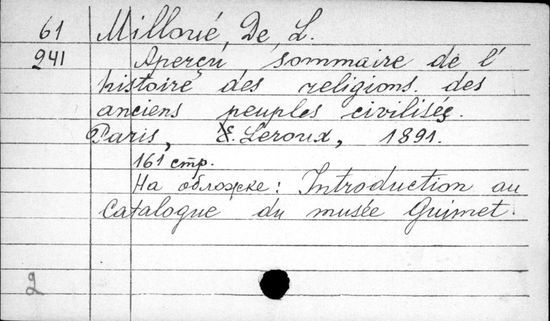 61 Milloué, De, L.
241 Aperçu sommaire de l'
histoire des religions. des
anciens peuples civilisés.
Paris, E. Leroux, 1891.
161 стр.
На обложке: Introduction au
Catalogue du musée Guimet.
2